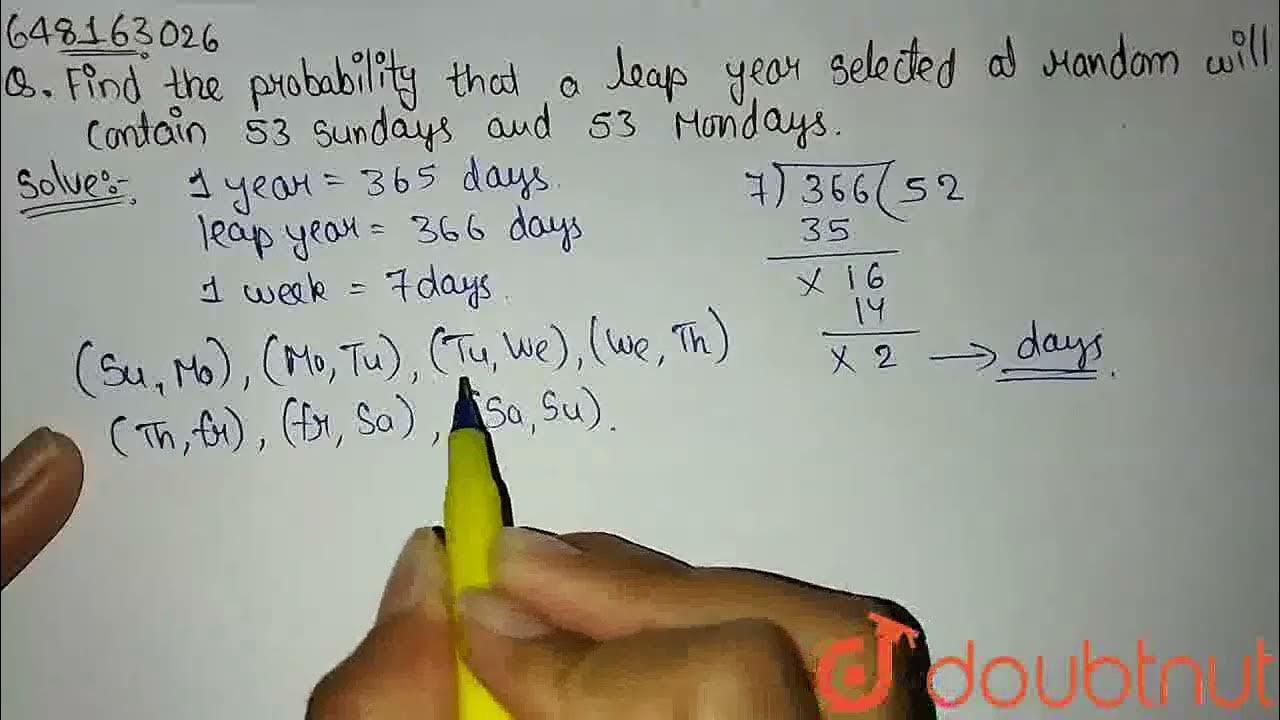 648163026
Q. Find the probability that a leap year selected at random will
contain 53 Sundays and 53 Mondays.
Solve:-
1 year = 365 days.
leap year = 366 days
1 week = 7 days.
7) 366 ( 52
35
x 16
14
x 2 → days.
(Su, Mo), (Mo, Tu), (Tu, We), (We, Th)
(Th, fr), (fr, Sa), (Sa, Su).
doubtnut